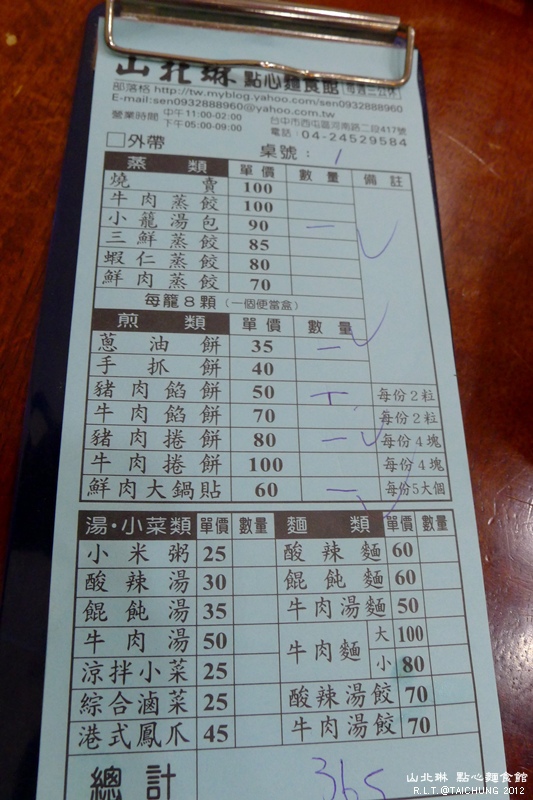 山北琳 點心麵食館 每週三公休
部落格 http://tw.myblog.yahoo.com/sen0932888960
E-mail:sen0932888960@yahoo.com.tw
營業時間 中午11:00-02:00 下午05:00-09:00
台中市西屯區河南路二段417號
電話：04-24529584
□外帶 桌號：1
蒸類 單價 數量 備註
燒賣 100
牛肉蒸餃 100
小籠湯包 90 一
三鮮蒸餃 85
蝦仁蒸餃 80
鮮肉蒸餃 70
每籠8顆（一個便當盒）
煎類 單價 數量
蔥油餅 35 一
手抓餅 40
豬肉餡餅 50 每份2粒
牛肉餡餅 70 每份2粒
豬肉捲餅 80 一 每份4塊
牛肉捲餅 100 每份4塊
鮮肉大鍋貼 60 一 每份5大個
湯·小菜類 單價 數量 麵類 單價 數量
小米粥 25 酸辣麵 60
酸辣湯 30 餛飩麵 60
餛飩湯 35 牛肉湯麵 50
牛肉湯 50 牛肉麵 大 100
涼拌小菜 25 小 80
綜合滷菜 25 酸辣湯餃 70
港式鳳爪 45 牛肉湯餃 70
總計 365
山北琳 點心麵食館
R.L.T.@TAICHUNG 2012